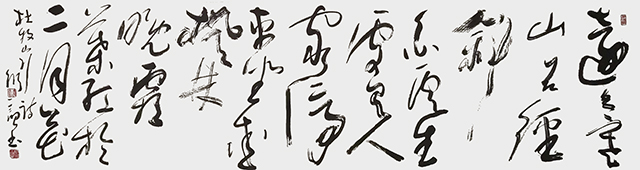 遠上寒
山石徑
斜
白雲生
處有人
家停
車坐愛
楓林
晚霜
葉紅於
二月花
杜牧山行詩
書